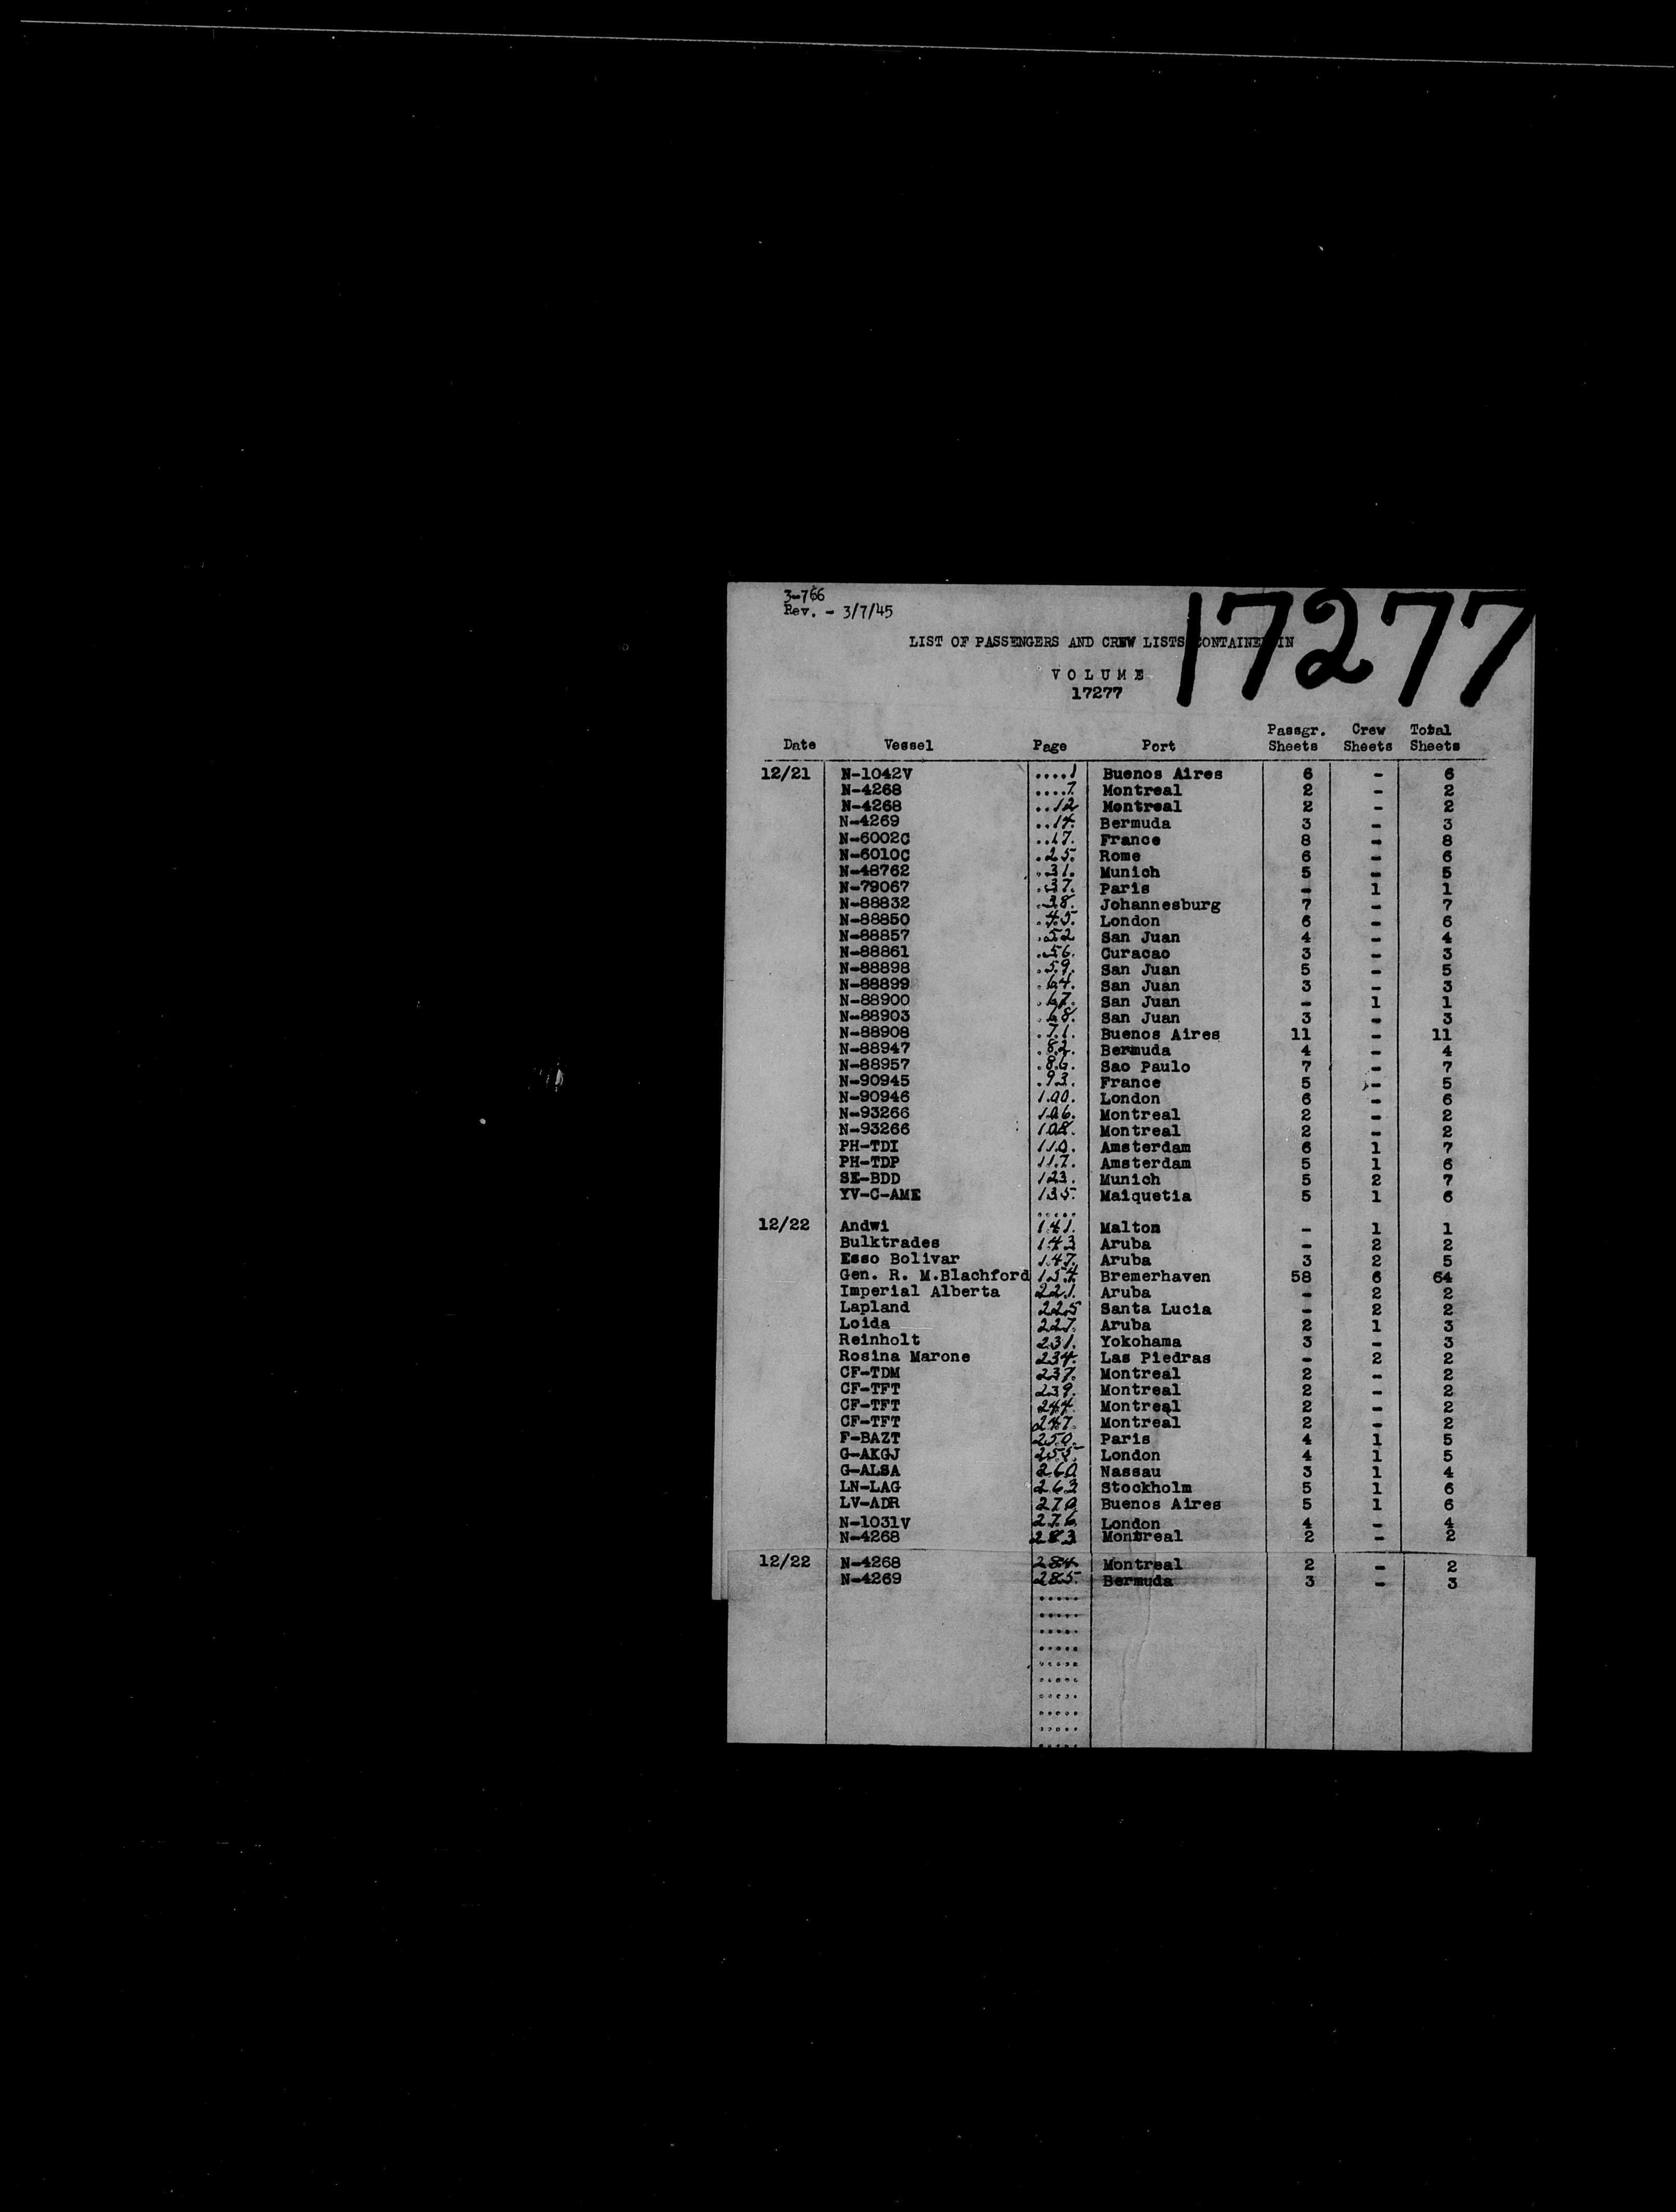 3-766
Rev. - 3/7/45
17277
LIST OF PASSENGERS AND CREW LISTS CONTAINED IN
VOLUME
17277
Date Vessel Page Port Passgr. Sheets Crew Sheets Total Sheets
12/21 N-1042V ....1 Buenos Aires 6 - 6
N-4268 ....7. Montreal 2 - 2
N-4268 ..12 Montreal 2 - 2
N-4269 ..14. Bermuda 3 - 3
N-6002C ..17. France 8 - 8
N-6010C .25. Rome 6 - 6
N-48762 .31. Munich 5 - 5
N-79067 .37. Paris - 1 1
N-88832 .38. Johannesburg 7 - 7
N-88850 .45. London 6 - 6
N-88857 .52 San Juan 4 - 4
N-88861 .56. Curacao 3 - 3
N-88898 .59. San Juan 5 - 5
N-88899 .64. San Juan 3 - 3
N-88900 .67. San Juan - 1 1
N-88903 .68. San Juan 3 - 3
N-88908 .71. Buenos Aires 11 - 11
N-88947 .82. Bermuda 4 - 4
N-88957 .86. Sao Paulo 7 - 7
N-90945 .93. France 5 - 5
N-90946 100. London 6 - 6
N-93266 106. Montreal 2 - 2
N-93266 108. Montreal 2 - 2
PH-TDI 110. Amsterdam 6 1 7
PH-TDP 117. Amsterdam 5 1 6
SE-BDD 123. Munich 5 2 7
YV-C-AME 135. Maiquetia 5 1 6
.....
12/22 Andwi 141. Malton - 1 1
Bulktrades 143 Aruba - 2 2
Esso Bolivar 147. Aruba 3 2 5
Gen. R. M.Blachford 154. Bremerhaven 58 6 64
Imperial Alberta 221. Aruba - 2 2
Lapland 225 Santa Lucia - 2 2
Loida 227. Aruba 2 1 3
Reinholt 231. Yokohama 3 - 3
Rosina Marone 234. Las Piedras - 2 2
CF-TDM 237. Montreal 2 - 2
CF-TFT 239. Montreal 2 - 2
CF-TFT 244. Montreal 2 - 2
CF-TFT 247. Montreal 2 - 2
F-BAZT 250. Paris 4 1 5
G-AKGJ 255. London 4 1 5
G-ALSA 260 Nassau 3 1 4
LN-LAG 263 Stockholm 5 1 6
LV-ADR 270 Buenos Aires 5 1 6
N-1031V 276 London 4 - 4
N-4268 283 Montreal 2 - 2
12/22 N-4268 284. Montreal 2 - 2
N-4269 285. Bermuda 3 - 3